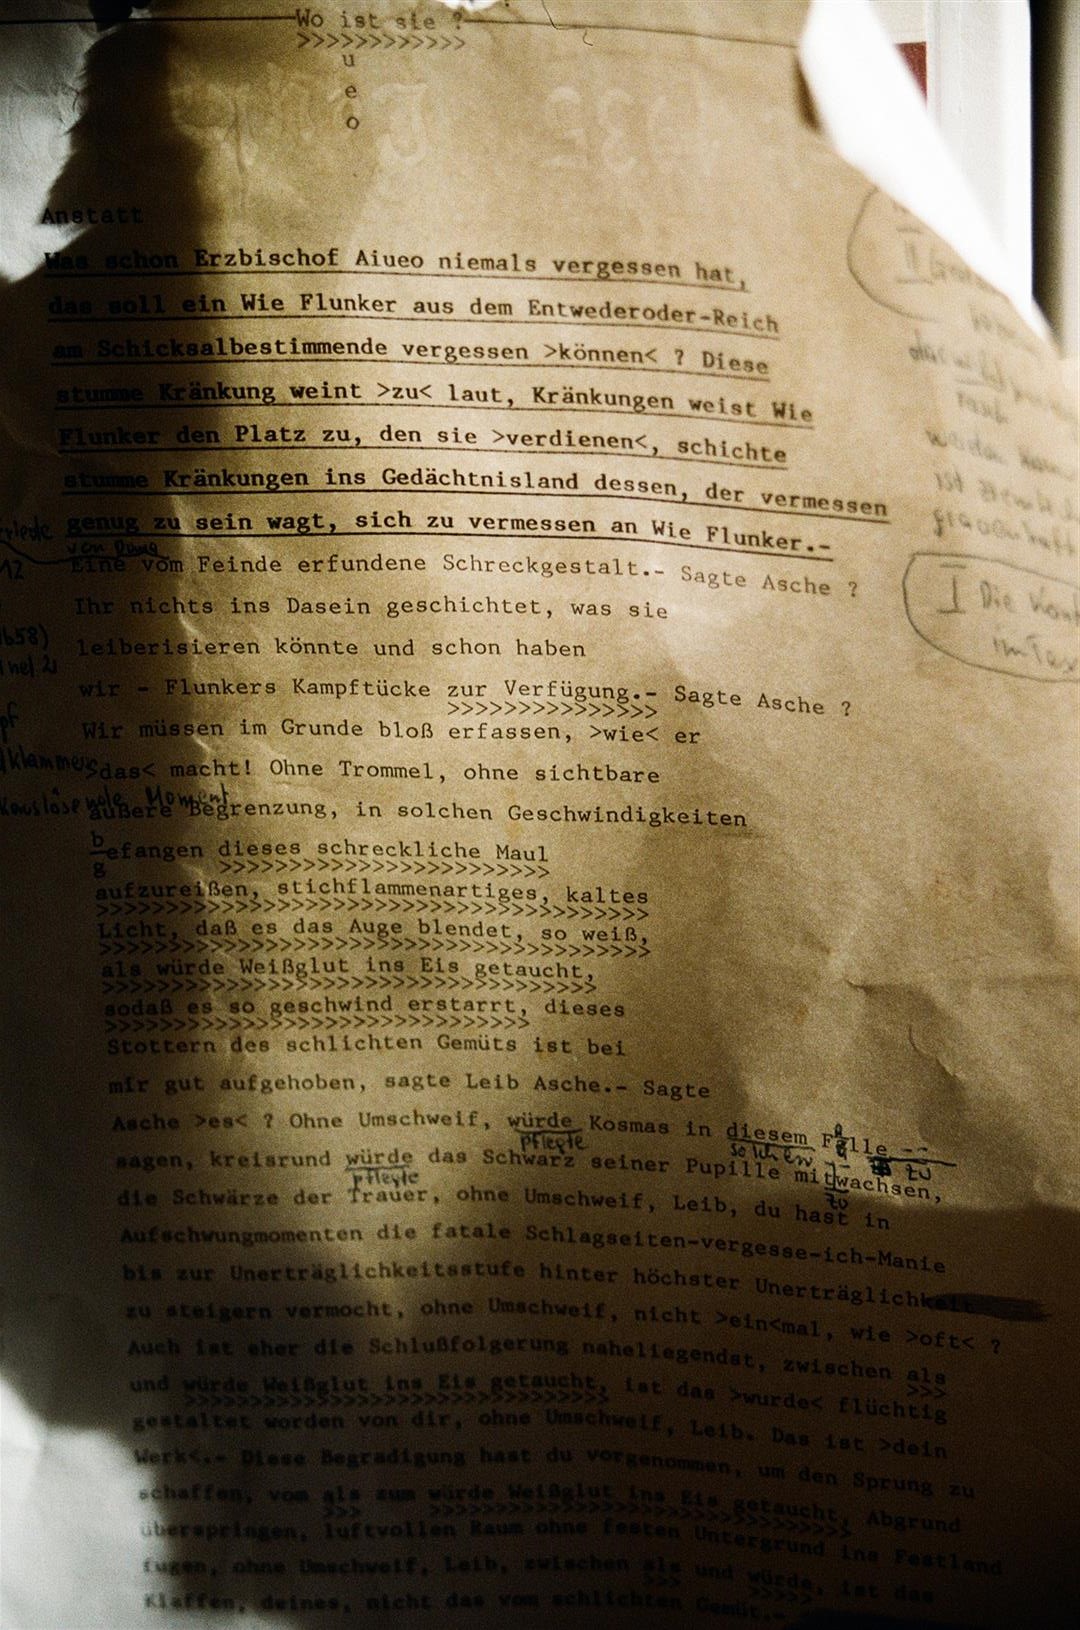 Wo ist sie ?
>>>>>>>>>>>>
u
e
o
Anstatt
Was schon Erzbischof Aiueo niemals vergessen hat,
das soll ein Wie Flunker aus dem Entwederoder-Reich
am Schicksalbestimmende vergessen >können< ? Diese
stumme Kränkung weint >zu< laut, Kränkungen weist Wie
Flunker den Platz zu, den sie >verdienen<, schichte
stumme Kränkungen ins Gedächtnisland dessen, der vermessen
genug zu sein wagt, sich zu vermessen an Wie Flunker.-
12
Eine vom Feinde erfundene Schreckgestalt.- Sagte Asche ?
Ihr nichts ins Dasein geschichtet, was sie
leiberisieren könnte und schon haben
wir - Flunkers Kampftücke zur Verfügung.- Sagte Asche ?
>>>>>>>>>>>>>>>
Wir müssen im Grunde bloß erfassen, >wie< er
>das< macht! Ohne Trommel, ohne sichtbare
Moment
äußere Begrenzung, in solchen Geschwindigkeiten
b
efangen dieses schreckliche Maul
g
>>>>>>>>>>>>>>>>>>>>>>>>
aufzureißen, stichflammenartiges, kaltes
>>>>>>>>>>>>>>>>>>>>>>>>>>>>>>>>>>>>>>>>
Licht, daß es das Auge blendet, so weiß,
>>>>>>>>>>>>>>>>>>>>>>>>>>>>>>>>>>>>>>>>
als würde Weißglut ins Eis getaucht,
>>>>>>>>>>>>>>>>>>>>>>>>>>>>>>>>>>>>
sodaß es so geschwind erstarrt, dieses
>>>>>>>>>>>>>>>>>>>>>>>>>>>>>>>
Stottern des schlichten Gemüts ist bei
mir gut aufgehoben, sagte Leib Asche.- Sagte
Asche >es< ? Ohne Umschweif, würde Kosmas in diesem Falle
pflegte solchen zu
sagen, kreisrund würde das Schwarz seiner Pupille mitwachsen,
pflegte zu
die Schwärze der Trauer, ohne Umschweif, Leib, du hast in
Aufschwungmomenten die fatale Schlagseiten-vergesse-ich-Manie
bis zur Unerträglichkeitsstufe hinter höchster Unerträglichkeit
zu steigern vermocht, ohne Umschweif, nicht >ein<mal, wie >oft< ?
Auch ist eher die Schlußfolgerung naheliegendst, zwischen als
>>>
und würde Weißglut ins Eis getaucht, ist das >wurde< flüchtig
>>>>>>>>>>>>>>>>>>>>>>>>>>>>>>>>
gestaltet worden von dir, ohne Umschweif, Leib. Das ist >dein
Werk<.- Diese Begradigung hast du vorgenommen, um den Sprung zu
schaffen, vom als zum würde Weißglut ins Eis getaucht, Abgrund
>>> >>>>>>>>>>>>>>>>>>>>>>>>>>>>>>>>
überspringen, luftvollen Raum ohne festen Untergrund ins Festland
fugen, ohne Umschweif, Leib, zwischen als und würde, ist das
>>> >>>>>
Klaffen, deines, nicht das vom schlichten Gemüt.-
II
I Die